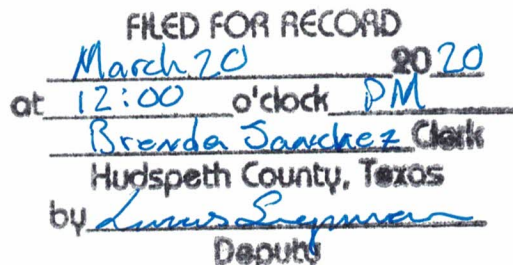 FILED FOR RECORD
March 20 2020
at 12:00 o'clock PM
Brenda Sanchez Clerk
Hudspeth County, Texas
by
Deputy